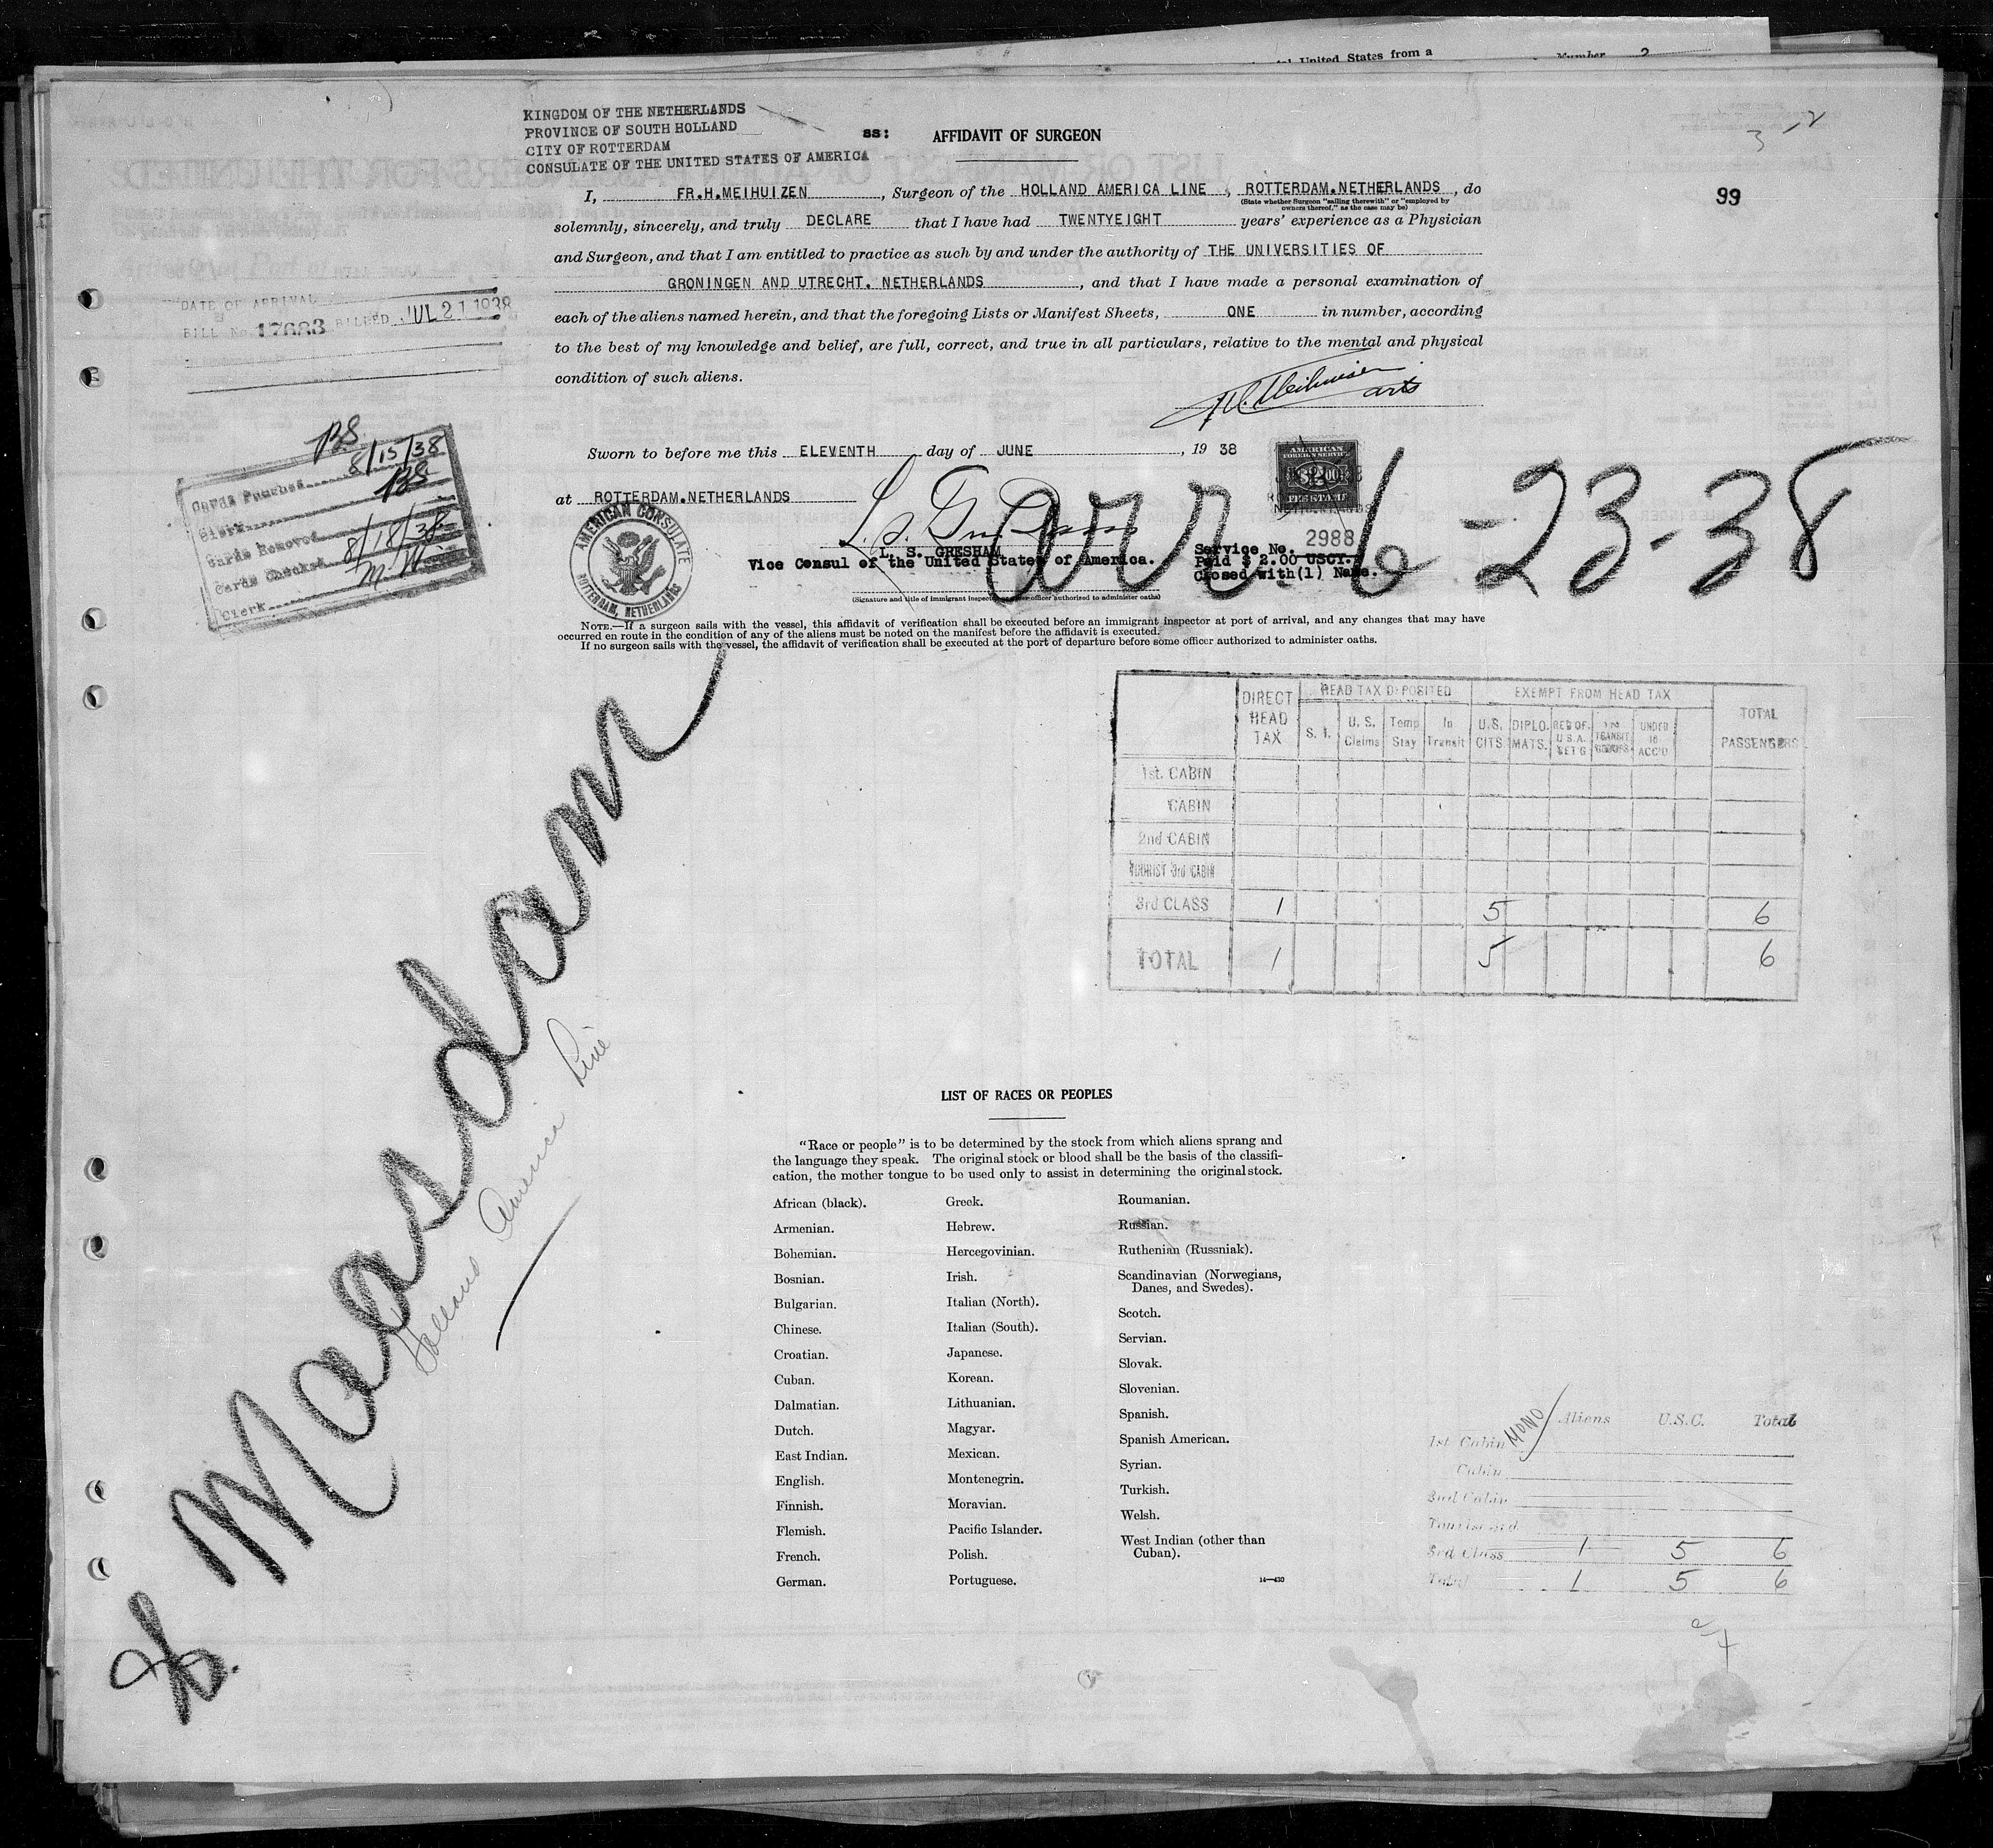 United States from a
Number 2
KINGDOM OF THE NETHERLANDS
PROVINCE OF SOUTH HOLLAND
CITY OF ROTTERDAM
CONSULATE OF THE UNITED STATES OF AMERICA
ss: AFFIDAVIT OF SURGEON
99
I, FR.H.MEIHUIZEN, Surgeon of the HOLLAND AMERICA LINE, ROTTERDAM.NETHERLANDS, do
(State whether Surgeon "sailing therewith" or "employed by
owners thereof," as the case may be)
solemnly, sincerely, and truly DECLARE that I have had TWENTYEIGHT years' experience as a Physician
and Surgeon, and that I am entitled to practice as such by and under the authority of THE UNIVERSITIES OF
GRONINGEN AND UTRECHT. NETHERLANDS, and that I have made a personal examination of
each of the aliens named herein, and that the foregoing Lists or Manifest Sheets, ONE in number, according
to the best of my knowledge and belief, are full, correct, and true in all particulars, relative to the mental and physical
condition of such aliens.
DATE OF ARRIVAL
BILL No. 17683 BILLED JUL 21 1938
arts
Sworn to before me this ELEVENTH day of JUNE, 1938
at ROTTERDAM.NETHERLANDS
AMERICAN CONSULATE
ROTTERDAM, NETHERLANDS
AMERICAN
FOREIGN SERVICE
$2.00
FEE STAMP
L. S. GRESHAM
Vice Consul of the United States of America.
Service No. 2988
Paid $ 2.00 USCY.
Closed with(1) Name.
(Signature and title of immigrant inspector or other officer authorized to administer oaths)
arr. 6-23-38
BS
Cards Punched 8/15/38
Clerk BS
Cards Removed
Cards Checked 8/18/38
Clerk
NOTE.—If a surgeon sails with the vessel, this affidavit of verification shall be executed before an immigrant inspector at port of arrival, and any changes that may have
occurred en route in the condition of any of the aliens must be noted on the manifest before the affidavit is executed.
If no surgeon sails with the vessel, the affidavit of verification shall be executed at the port of departure before some officer authorized to administer oaths.
DIRECT HEAD TAX HEAD TAX DEPOSITED EXEMPT FROM HEAD TAX TOTAL PASSENGERS
S. I. U. S. Claims Temp Stay In Transit U.S. CITS DIPLO. MATS. RES OF. U.S.A. RET'G TRANSIT UNDER 16 ACC'D
1st. CABIN
CABIN
2nd CABIN
TOURIST 3rd CABIN
3rd CLASS 1 5 6
TOTAL 1 5 6
Maasdam
Holland America Line
LIST OF RACES OR PEOPLES
"Race or people" is to be determined by the stock from which aliens sprang and
the language they speak. The original stock or blood shall be the basis of the classifi-
cation, the mother tongue to be used only to assist in determining the original stock.
African (black).
Armenian.
Bohemian.
Bosnian.
Bulgarian.
Chinese.
Croatian.
Cuban.
Dalmatian.
Dutch.
East Indian.
English.
Finnish.
Flemish.
French.
German.
Greek.
Hebrew.
Hercegovinian.
Irish.
Italian (North).
Italian (South).
Japanese.
Korean.
Lithuanian.
Magyar.
Mexican.
Montenegrin.
Moravian.
Pacific Islander.
Polish.
Portuguese.
Roumanian.
Russian.
Ruthenian (Russniak).
Scandinavian (Norwegians,
Danes, and Swedes).
Scotch.
Servian.
Slovak.
Slovenian.
Spanish.
Spanish American.
Syrian.
Turkish.
Welsh.
West Indian (other than
Cuban).
14—430
MONO
Aliens U.S.C. Total
1st Cabin
Cabin
2nd Cabin
Tourist 3rd
3rd Class 1 5 6
Total 1 5 6